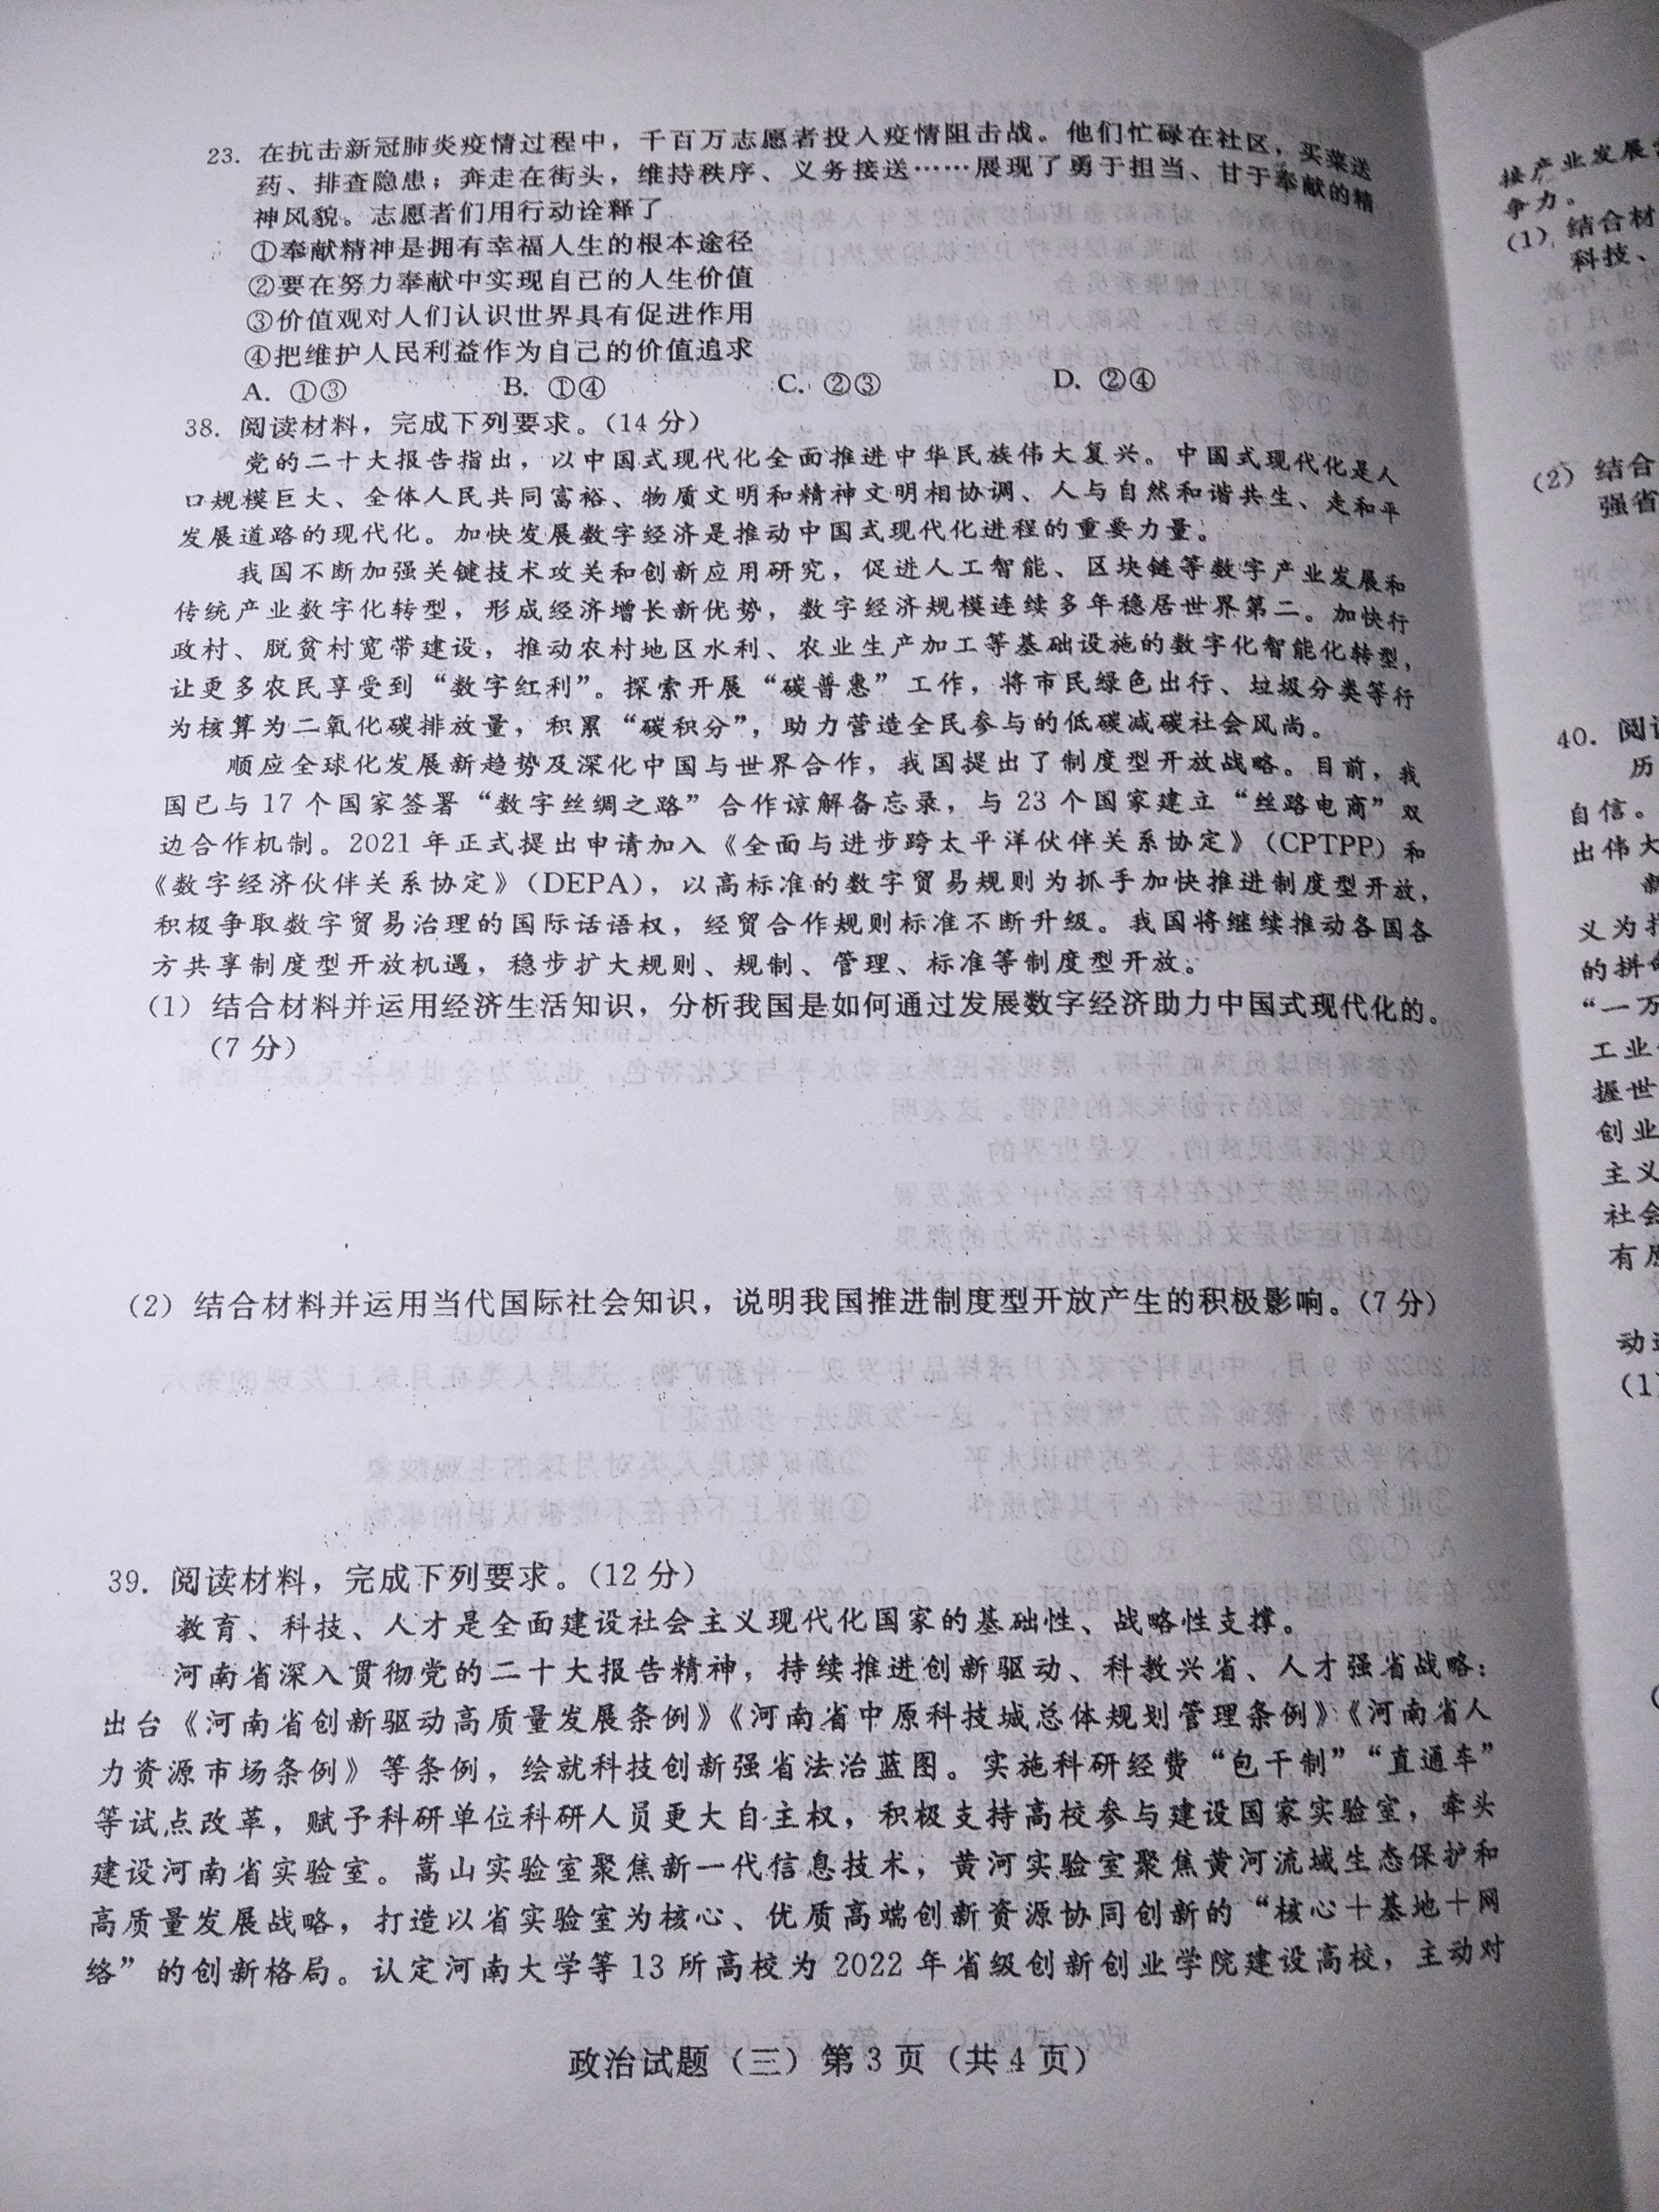 23. 在抗击新冠肺炎疫情过程中，千百万志愿者投入疫情阻击战。他们忙碌在社区，买菜送
药、排查隐患；奔走在街头，维持秩序、义务接送……展现了勇于担当、甘于奉献的精
神风貌。志愿者们用行动诠释了
①奉献精神是拥有幸福人生的根本途径
②要在努力奉献中实现自己的人生价值
③价值观对人们认识世界具有促进作用
④把维护人民利益作为自己的价值追求
A. ①③ B. ①④ C. ②③ D. ②④
38. 阅读材料，完成下列要求。（14 分）
党的二十大报告指出，以中国式现代化全面推进中华民族伟大复兴。中国式现代化是人
口规模巨大、全体人民共同富裕、物质文明和精神文明相协调、人与自然和谐共生、走和平
发展道路的现代化。加快发展数字经济是推动中国式现代化进程的重要力量。
我国不断加强关键技术攻关和创新应用研究，促进人工智能、区块链等数字产业发展和
传统产业数字化转型，形成经济增长新优势，数字经济规模连续多年稳居世界第二。加快行
政村、脱贫村宽带建设，推动农村地区水利、农业生产加工等基础设施的数字化智能化转型，
让更多农民享受到“数字红利”。探索开展“碳普惠”工作，将市民绿色出行、垃圾分类等行
为核算为二氧化碳排放量，积累“碳积分”，助力营造全民参与的低碳减碳社会风尚。
顺应全球化发展新趋势及深化中国与世界合作，我国提出了制度型开放战略。目前，我
国已与 17 个国家签署“数字丝绸之路”合作谅解备忘录，与 23 个国家建立“丝路电商”双
边合作机制。2021 年正式提出申请加入《全面与进步跨太平洋伙伴关系协定》（CPTPP）和
《数字经济伙伴关系协定》（DEPA），以高标准的数字贸易规则为抓手加快推进制度型开放，
积极争取数字贸易治理的国际话语权，经贸合作规则标准不断升级。我国将继续推动各国各
方共享制度型开放机遇，稳步扩大规则、规制、管理、标准等制度型开放。
（1）结合材料并运用经济生活知识，分析我国是如何通过发展数字经济助力中国式现代化的。
（7 分）
（2）结合材料并运用当代国际社会知识，说明我国推进制度型开放产生的积极影响。（7 分）
39. 阅读材料，完成下列要求。（12 分）
教育、科技、人才是全面建设社会主义现代化国家的基础性、战略性支撑。
河南省深入贯彻党的二十大报告精神，持续推进创新驱动、科教兴省、人才强省战略：
出台《河南省创新驱动高质量发展条例》《河南省中原科技城总体规划管理条例》《河南省人
力资源市场条例》等条例，绘就科技创新强省法治蓝图。实施科研经费“包干制”“直通车”
等试点改革，赋予科研单位科研人员更大自主权，积极支持高校参与建设国家实验室，牵头
建设河南省实验室。嵩山实验室聚焦新一代信息技术，黄河实验室聚焦黄河流域生态保护和
高质量发展战略，打造以省实验室为核心、优质高端创新资源协同创新的“核心＋基地＋网
络”的创新格局。认定河南大学等 13 所高校为 2022 年省级创新创业学院建设高校，主动对
政治试题（三）第 3 页（共 4 页）
接产业发展
争力。
（1）结合材
科技、
（2）结合
强省
40. 阅
历
自信。
出伟大
义为
的拼
“一万
工业
握世
创业
主义
社会
有
动
（1